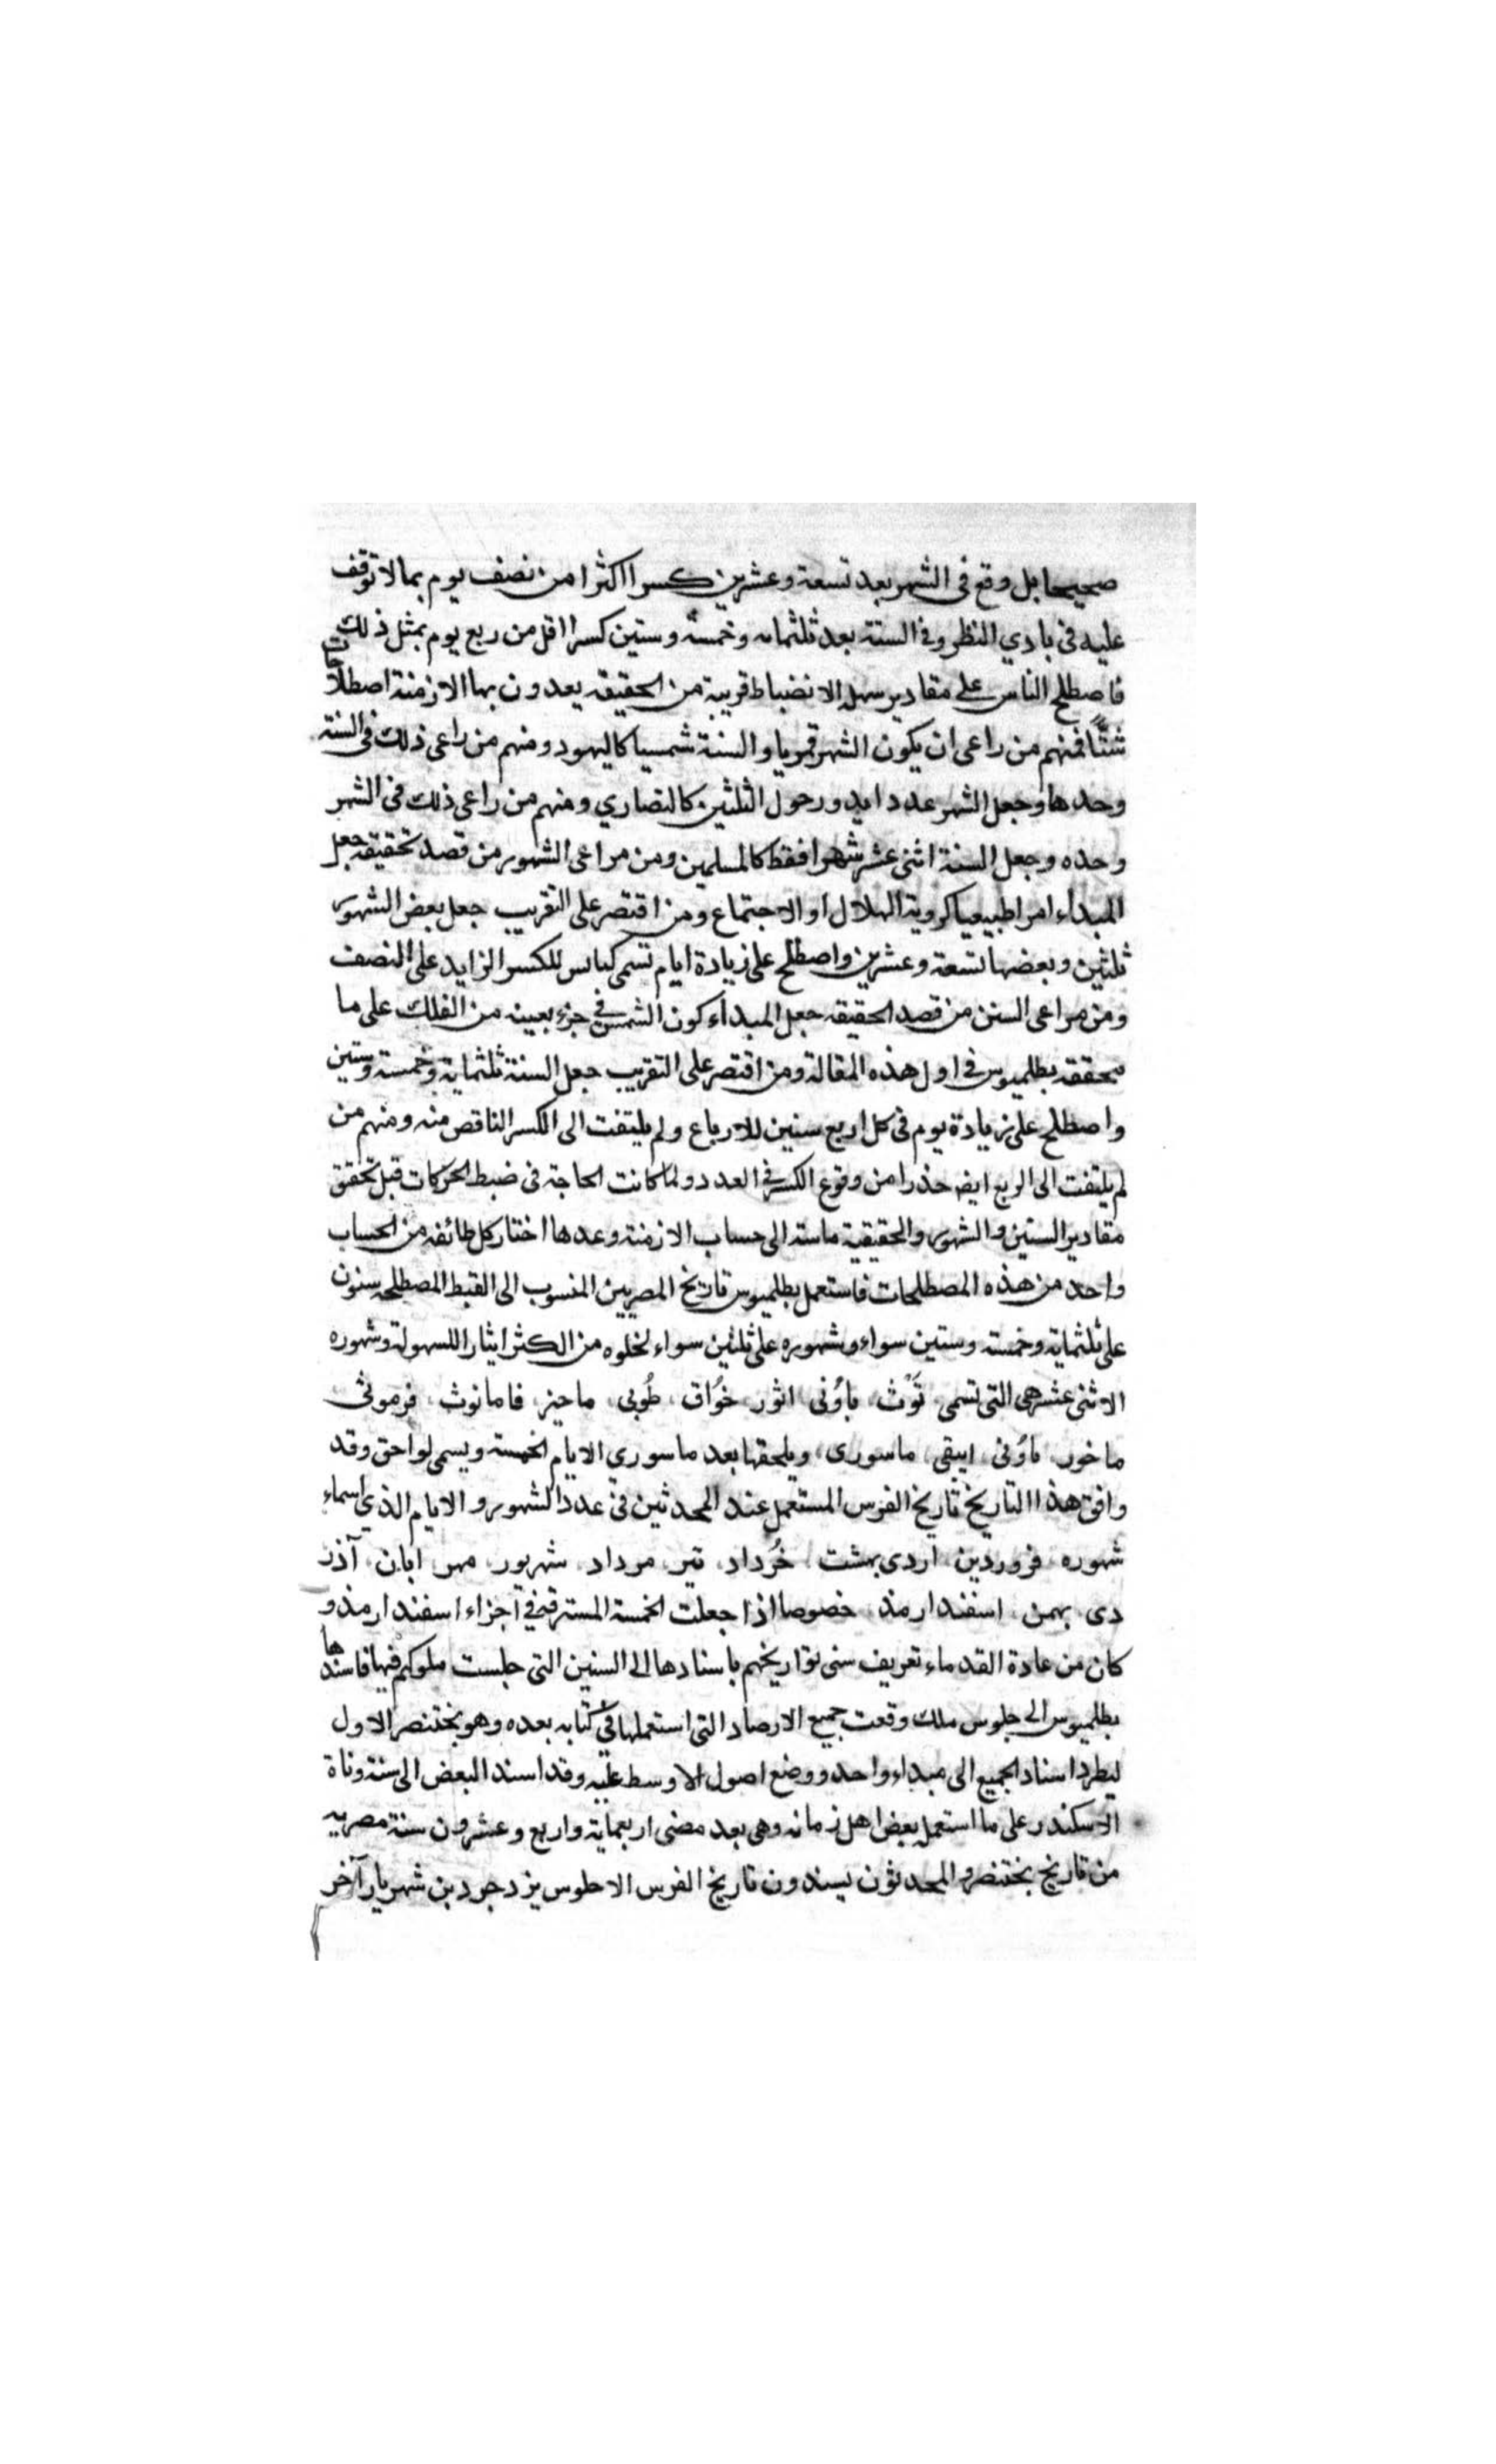 صحيحا بل وقع في الشهر بعد تسعة وعشرين كسرا اكثرا من نصف يوم بما لا توقف
عليه في بادي النظر وفي السنة بعد ثلثمايه وخمسة وستين كسرا اقل من ربع يوم بمثل ذلك
فاصطلح الناس على مقادير سهلة الانضباط قريبة من الحقيقه يعدون بها الازمنة اصطلاحات
شتًّا فمنهم من راعى ان يكون الشهر قمريا والسنة شمسيا كاليهود ومنهم من راعى ذلك في السنة
وحدها وجعل الشهر عددا يدور حول الثلثين كالنصاري ومنهم من راعى ذلك في الشهر
وحده وجعل السنة اثنى عشر شهرا فقط كالمسلمين ومن مراعى الشهور من قصد تحقيقه جعل
المبداء امرا طبيعيا كروية الهلال او الاجتماع ومن اقتصر على التقريب جعل بعض الشهور
ثلثين وبعضها تسعة وعشرين واصطلح على زيادة ايام تسمى كبايس للكسر الزايد على النصف
ومن مراعى السنن من قصد الحقيقه جعل المبداء كون الشمس في جزء بعينه من الفلك على ما
يحققه بطلميوس في اول هذه المقالة ومن اقتصر على التقريب جعل السنة ثلثماية وخمسة وستين
واصطلح على زيادة يوم في كل اربع سنين للارباع ولم يلتفت الى الكسر الناقص منه ومنهم من
لم يلتفت الى الربع ايضا حذرا من وقوع الكسر في العدد ولما كانت الحاجة في ضبط الحركات قبل تحقق
مقادير السنين والشهور والحقيقية ماسة الى حساب الازمنة وعدها اختار كل طائفه من الحساب
واحد من هذه المصطلحات فاستعمل بطلميوس تاريخ المصريين المنسوب الى القبط المصطلحه سنون
على ثلثماية وخمسة وستين سواء وشهوره على ثلثين سواء لخلوه من الكثر ايثارا للسهولة وشهوره
الاثنى عشر هي التي تسمى توث باؤنى اثور خُواق طُوبى ماحيز فامانوث فرموثى
ماخور باؤنى ابيقى ماسورى ويلحقها بعد ماسوري الايام الخمسة ويسمى لواحق وقد
وافق هذا التاريخ تاريخ الفرس المستعمل عند المحدثين في عدد الشهور والايام الذي اسماء
شهوره فروردين اردى بهشت خُرداد تير مرداد شهريور مهر ابان آذر
دى بهمن اسفندارمذ خصوصا اذا جعلت الخمسة المسترقة في آجزاء اسفندارمذ و
كان من عادة القدماء تعريف سنى تواريخهم باسنادها الى السنين التي جلست ملوكهم فيها فاسندها
بطلميوس الى جلوس ملك وقعت جميع الارصاد التي استعملها في كتابه بعده وهو بختنصر الاول
ليطرد اسناد الجميع الى مبداء واحد ووضع اصول الاوسط عليه وقد اسند البعض الى سنة وفاة
الاسكندر على ما استعمل بعض اهل زمانه وهى بعد مضى اربعماية واربع وعشرون سنة مصريه
من تاريخ بختنصر والمحدثون يسندون تاريخ الفرس الا جلوس يزدجرد بن شهريار آخر